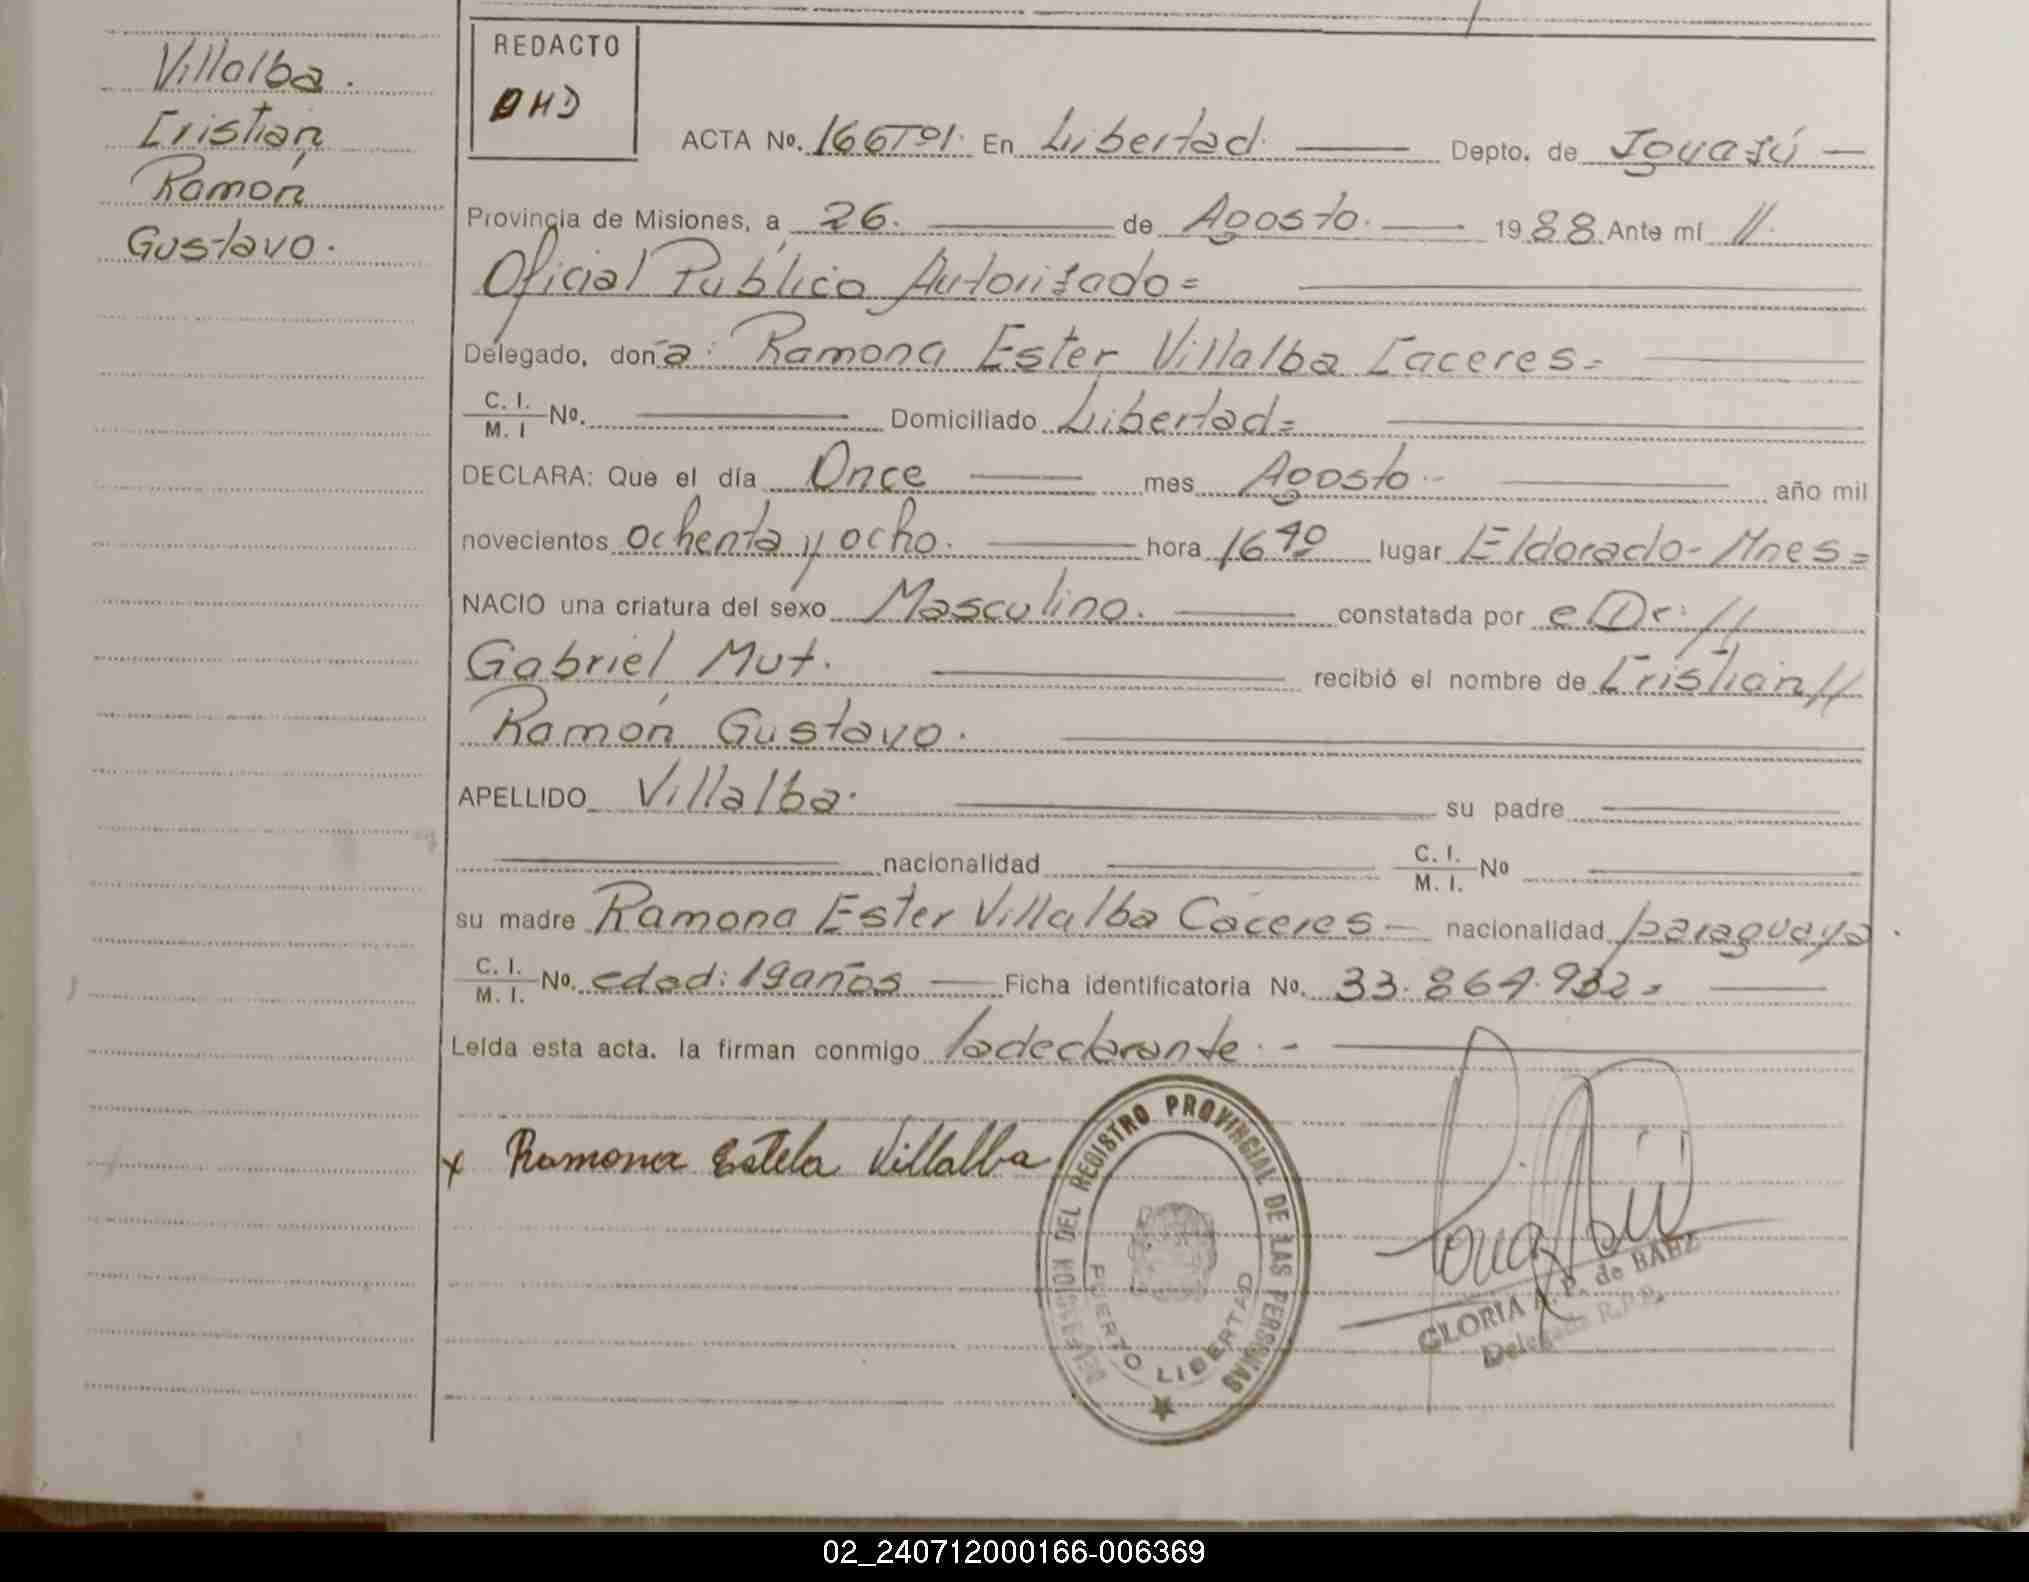 Villalba.
Cristian
Ramón
Gustavo.
REDACTO
DHD
ACTA Nº. 166Tº1. En Libertad. Depto. de Iguazú
Provincia de Misiones, a 26. de Agosto. 1988. Ante mí //.
Oficial Público Autorizado=
Delegado, don a: Ramona Ester Villalba Caceres=
C. I. M. I Nº. Domiciliado Libertad=
DECLARA: Que el día Once mes Agosto- año mil
novecientos ochenta y ocho. hora 16 40 lugar Eldorado-Mnes=
NACIO una criatura del sexo Masculino. constatada por el Dr: //
Gabriel Mut. recibió el nombre de Cristian//
Ramón Gustavo.
APELLIDO Villalba. su padre
nacionalidad C. I. M. I. Nº
su madre Ramona Ester Villalba Cáceres- nacionalidad paraguaya.
C. I. M. I. Nº. edad: 19 años Ficha identificatoria Nº. 33.864.932=
Leída esta acta. la firman conmigo la declarante.-
x Ramona Estela Villalba
DELEGACION DEL REGISTRO PROVINCIAL DE LAS PERSONAS
PUERTO LIBERTAD
GLORIA A. P. de BAEZ
Delegada R.P.P.
02_240712000166-006369